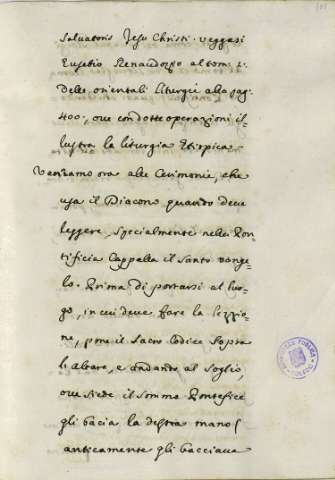 Salvatoris Jesu Christi. Veggasi
Eusebio Renaudozio al tom: 2.
delle orientali liturgie alla pag:
400:, ove con dotte operazioni il-
lustra la liturgia Etiopica.
Veniamo ora alle Cerimonie, che
usa il Diacono quando deve
leggere, specialmente nella Pon-
tificia Cappella il Santo Vange-
lo. Prima di portarsi al luo-
go, in cui deve fare la lezzio-
ne, pone il Sacro Codice sopra
l'Altare, e andando al Soglio,
ove siede il Sommo Pontefice
gli bacia la destra mano (
anticamente gli bacciava